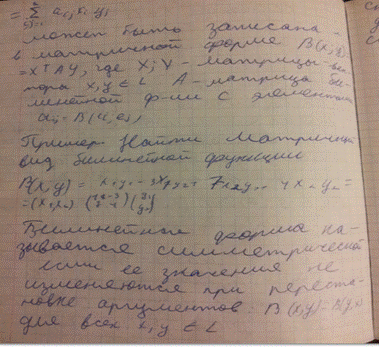 = Σ aij xi yj
может быть записана
в матричной форме B(x,y)=
= XᵀAY, где X, Y - матрицы век
тора x, y ∈ L A - матрица би-
линейной ф-ии с элементами
aij = B(ei, ej)
Пример: Найти матричный
вид билинейной функции
B(x,y) = x₁y₁ - 3x₁y₂ + 7x₂y₁ - 4x₂y₂ =
= (x₁ x₂)
Билинейная форма на-
зывается симметрической
если ее значения не
изменяются при переста-
новке аргументов: B(x,y) = B(y,x)
для всех x, y ∈ L